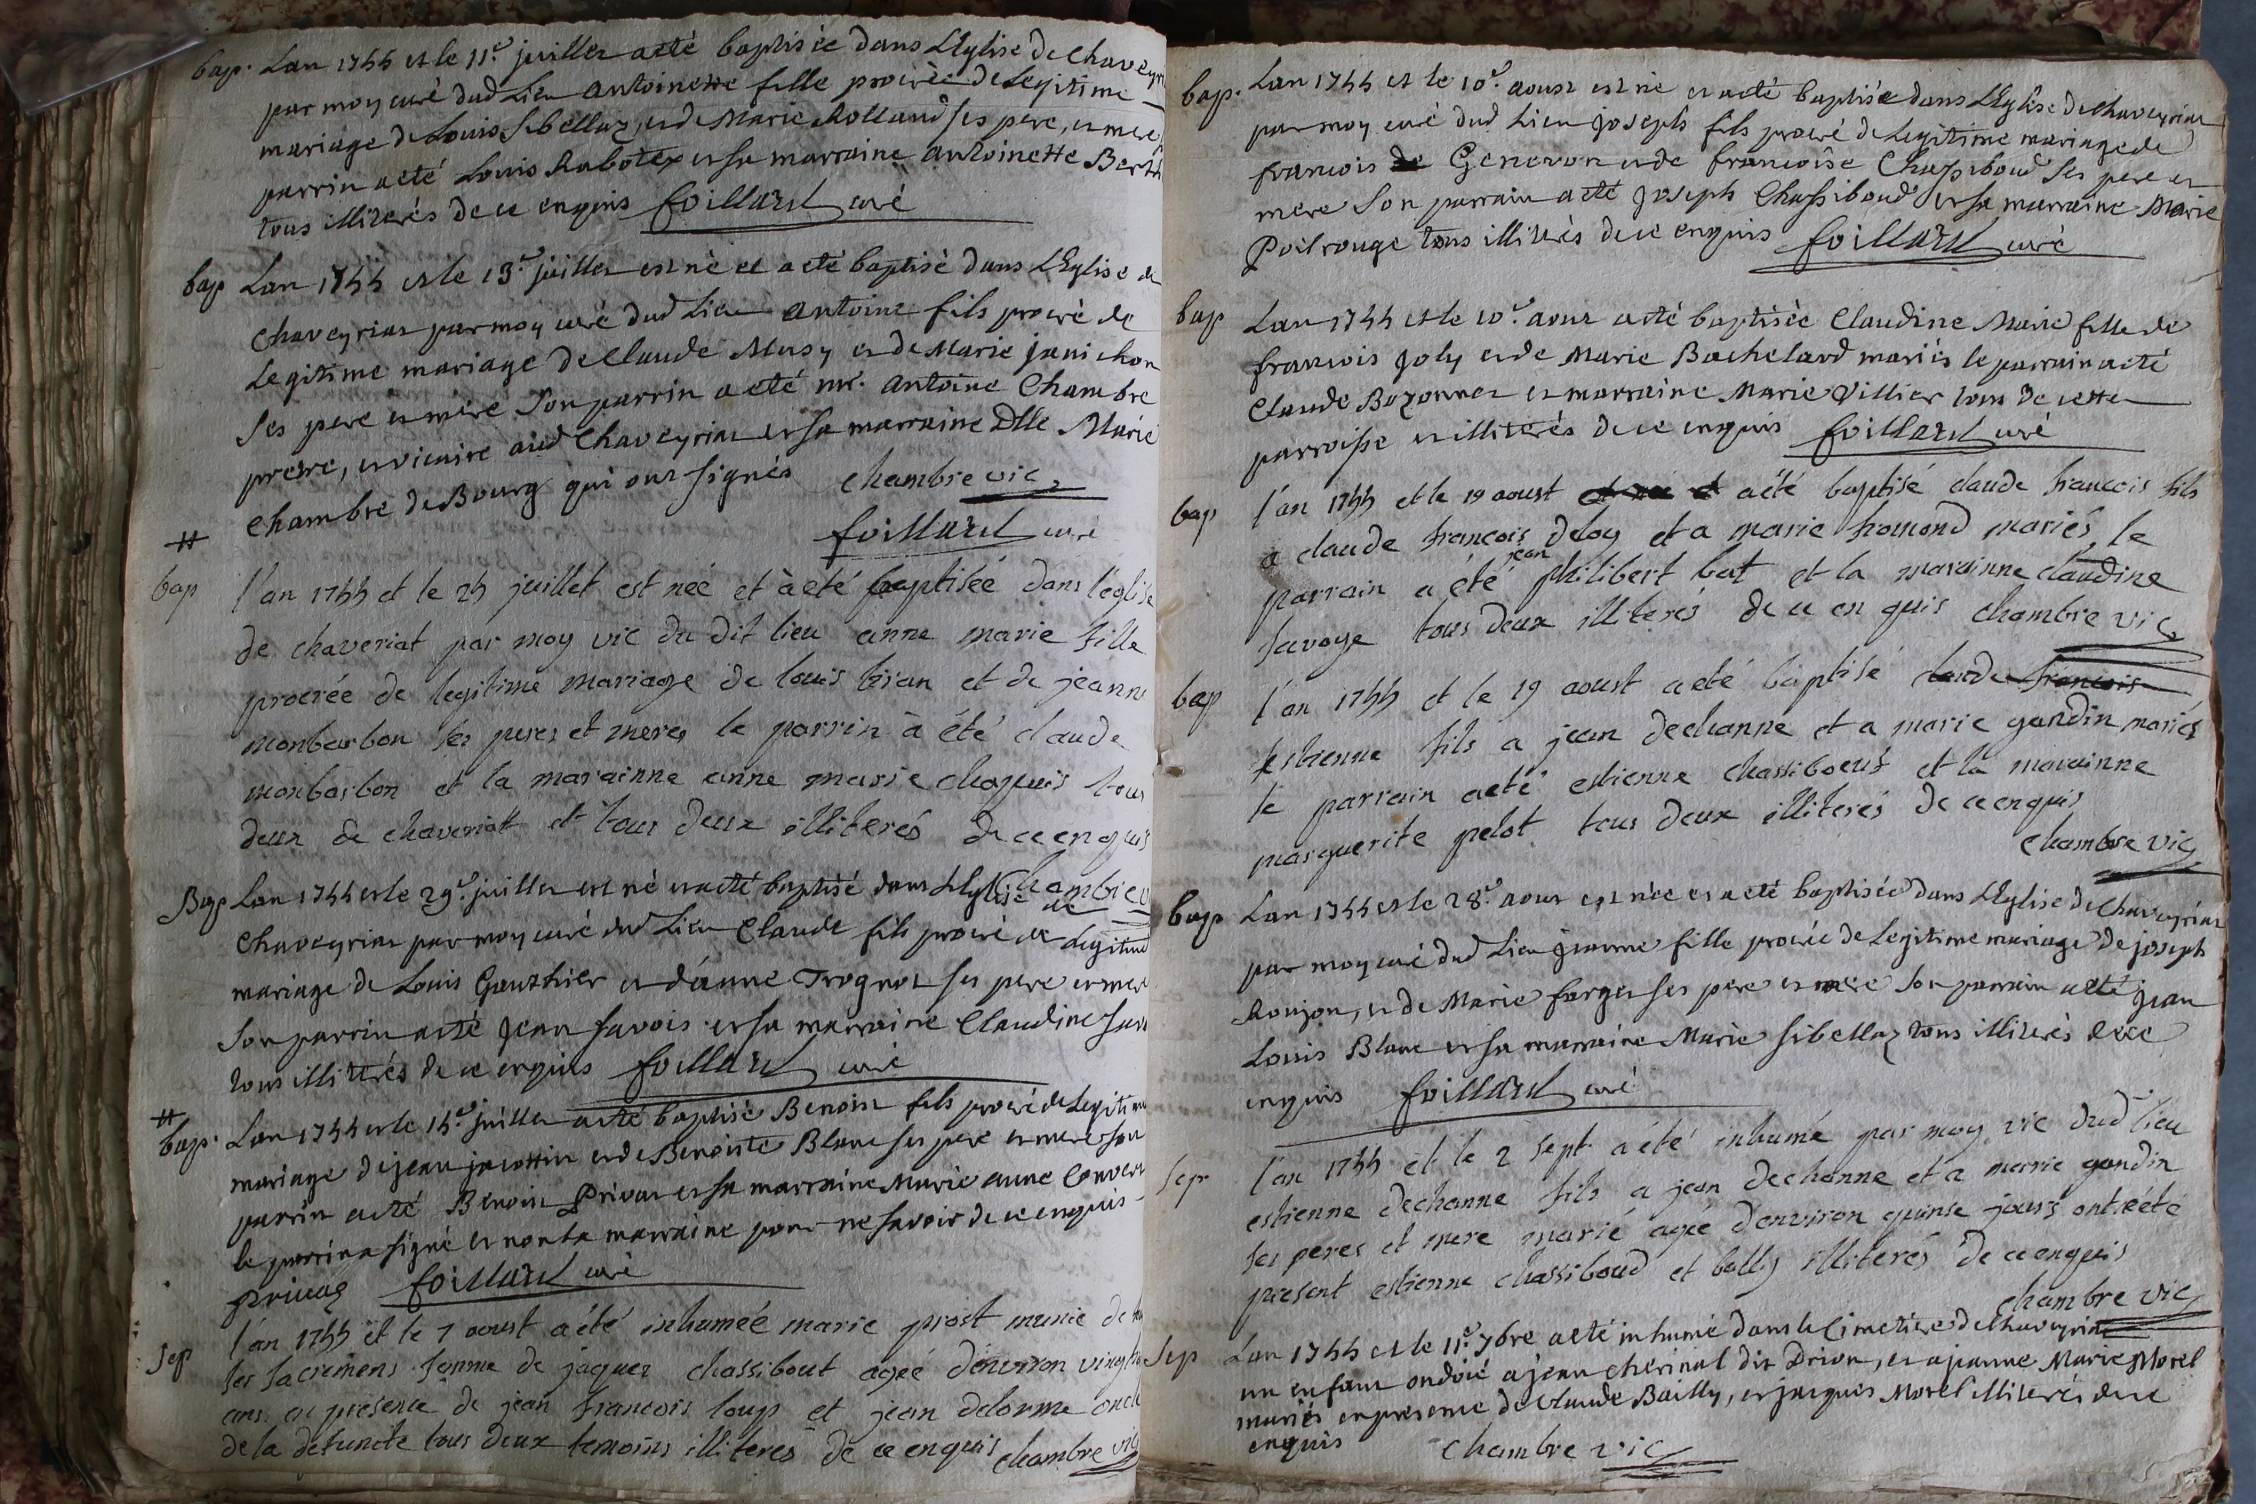 bap. Lan 1744 et le 11e. juillet a eté baptisée dans L'Eglise de Chaveyri
par moy curé dud Lieu Antoinette fille procrée de Legitime
mariage de Louis Sibellaz, et de Marie Rolland ses pere, et mere
parrin a eté Louis Rabotex et sa marraine Antoinette Berth
tous illiterés de ce enquis foillard curé
bap Lan 1744 et le 13e. juillet est né et a eté baptisé dans L'Eglise de
Chaveyriat par moy curé dud Lieu Antoine fils procré de
Legitime mariage de Claude Musy et de Marie janichon
ses pere et mere son parrin a eté mr. Antoine Chambre
pretre, et vicaire aud Chaveyriat et sa marraine Dlle Marie
Chambre de Bourg qui ont signés chambre vic
foillard curé
bap l'an 1744 et le 24 juillet est née et à eté baptisée dans l'eglise
de chaveriat par moy vic du dit lieu anne marie fille
procrée de legitime mariage de louis brian et de jeanne
monbarbon ses peres et meres le parrin à été claude
monbarbon et la marainne anne marie chapuis tous
deux de chaveriatt et tous deux illiterés de ce enquis
chambre v
Bap Lan 1744 et le 29e. juillet est né et a eté baptisé dans L'Eglise de
Chaveyriat par moy curé dud Lieu Claude fils procré de Legitime
mariage de Louis Gauthier et d'anne Trognot ses pere et mere
son parrin a eté Jean Savois et sa marraine Claudine Sav
tous illiterés de ce enquis foillard curé
bap. Lan 1744 et le 14e. juillet a eté baptisé Benoit fils procré de Legitime
mariage de jean jacottin et de Benoite Blanc ses pere et mere son
parrin a eté Benoit Privat et sa marraine Marie anne Convert
le parrin a signé et non la marraine pour ne savoir de ce enquis
privaz foillard curé
sep l'an 1744 et le 7 aoust a été inhumée marie prost munie de
ses sacremens femme de jaques chassibout agée d'environ vingt
ans en présence de jean francois loup et jean delorme oncle
de la defuncte tous deux temoins illiteres de ce enquis chambre vic
bap. Lan 1744 et le 10e. aoust est né et a eté baptisé dans L'Eglise de Chaveyriat
par moy curé dud Lieu joseph fils procré de Legitime mariage de
francois de Genevon et de francoise Chassiboud ses pere et
mere son parrain a eté Joseph Chassiboud et sa marraine Marie
Poilrouge tous illiterés de ce enquis foillard curé
bap Lan 1744 et le 10e. aout a eté baptisée Claudine Marie fille de
francois Joly et de Marie Bachelard mariés le parrain a eté
Claude Bozonnet et marraine Marie Villier tous de cette
parroisse et illiterés de ce enquis foillard curé
bap l'an 1744 et le 19 aoust et né et a été baptisé claude francois fils
a claude francois deloy et a marie fromond mariés, le
parrain a été jean philibert bat et la marainne claudine
savoye tous deux illiterés de ce en quis chambre vic
bap l'an 1744 et le 19 aoust a eté baptisé claude francois
Estienne fils a jean dechanne et a marie gandin mariés
le parrain a eté estienne chassiboeuf et la marainne
marguerite pelot tous deux illiterés de ce enquis
chambre vic
bap Lan 1744 et le 28e. aout est née et a eté baptisée dans L'Eglise de Chaveyriat
par moy curé dud Lieu jeanne fille procrée de Legitime mariage de joseph
Roujon, et de Marie farges ses pere et mere son parrain a eté jean
Louis Blanc et sa marraine Marie Sibellaz tous illiterés de ce
enquis foillard curé
sep l'an 1744 et le 2 sept a été inhumé par moy vic dud lieu
estienne dechanne fils a jean dechanne et a marie gandin
ses peres et mere marié agé d'environ quinse jours ont été
present estienne chassiboud et bally illiterés de ce enquis
chambre vic
sep Lan 1744 et le 11e. 7bre a eté inhumé dans le Cimetiere de Chaveyriat
un enfant ondoié a jean cherinal dit Drion, et a jeanne Marie Morel
mariés en presence de Claude Bailly, et jacques Morel illiterés de ce
enquis chambre vic